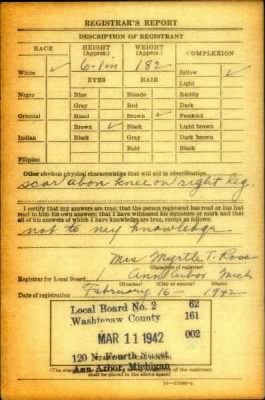 REGISTRAR'S REPORT
DESCRIPTION OF REGISTRANT
RACE HEIGHT (Approx.) WEIGHT (Approx.) COMPLEXION
6-1 in 182 Sallow ✓
White ✓ EYES HAIR Light
Negro Blue Blonde Ruddy
Gray Red Dark
Oriental Hazel Brown ✓ Freckled
Brown ✓ Black Light brown
Indian Black Gray Dark brown
Bald Black
Filipino
Other obvious physical characteristics that will aid in identification
scar above knee on right leg.
I certify that my answers are true; that the person registered has read or has had
read to him his own answers; that I have witnessed his signature or mark and that
all of his answers of which I have knowledge are true, except as follows:
not to my knowledge
Mrs Myrtle T. Rose
(Signature of registrar)
Registrar for Local Board Ann Arbor Mich
(Number) (City or county) (State)
Date of registration February 16 - 1942
Local Board No. 2 62
Washtenaw County 161
MAR 11 1942 002
120 N. Fourth Street
Ann Arbor, Michigan